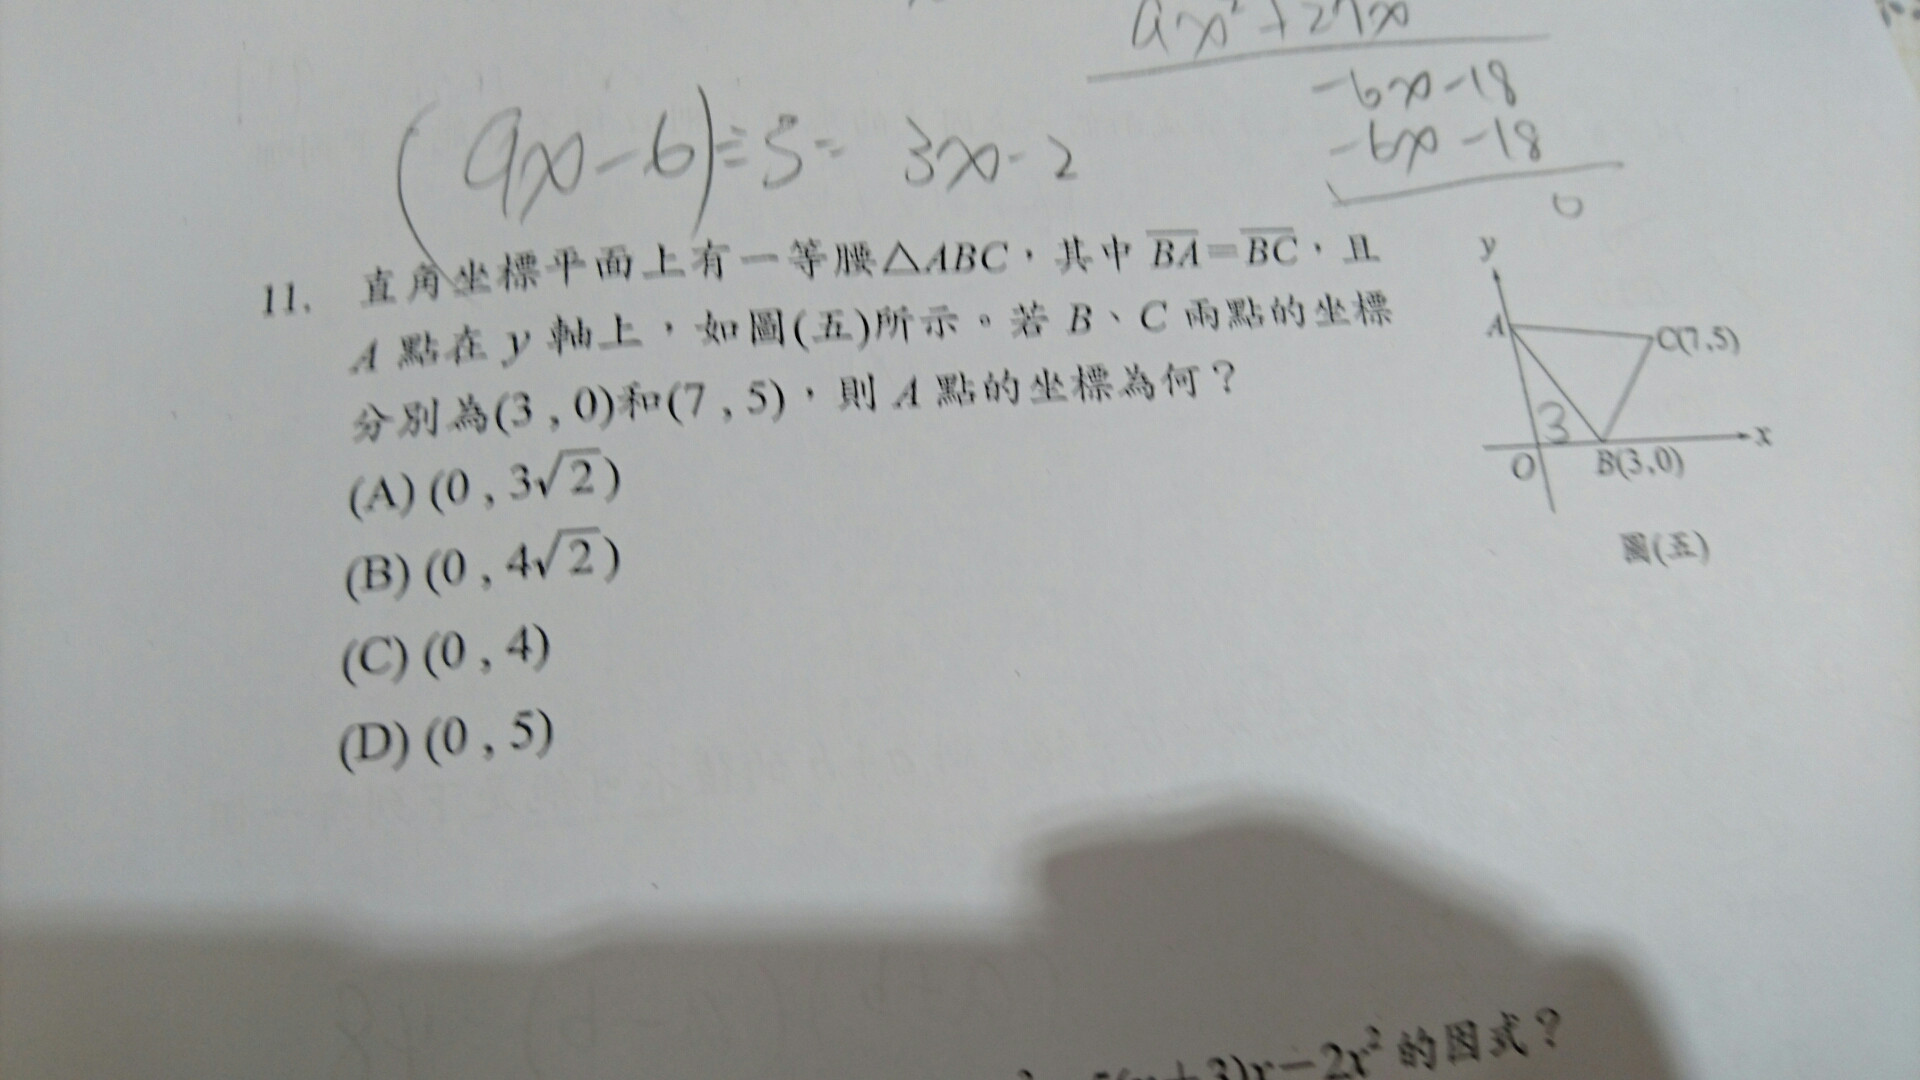 9x²+27x
-6x-18
-6x-18
0
(9x-6)÷5= 3x-2
11. 直角坐標平面上有一等腰△ABC，其中 BA=BC，且
A 點在 y 軸上，如圖(五)所示。若 B、C 兩點的坐標
分別為(3 , 0)和(7 , 5)，則 A 點的坐標為何？
(A) (0 , 3√2)
(B) (0 , 4√2)
(C) (0 , 4)
(D) (0 , 5)
y
A
C(7,5)
3
x
O
B(3,0)
圖(五)
x-2x² 的因式？